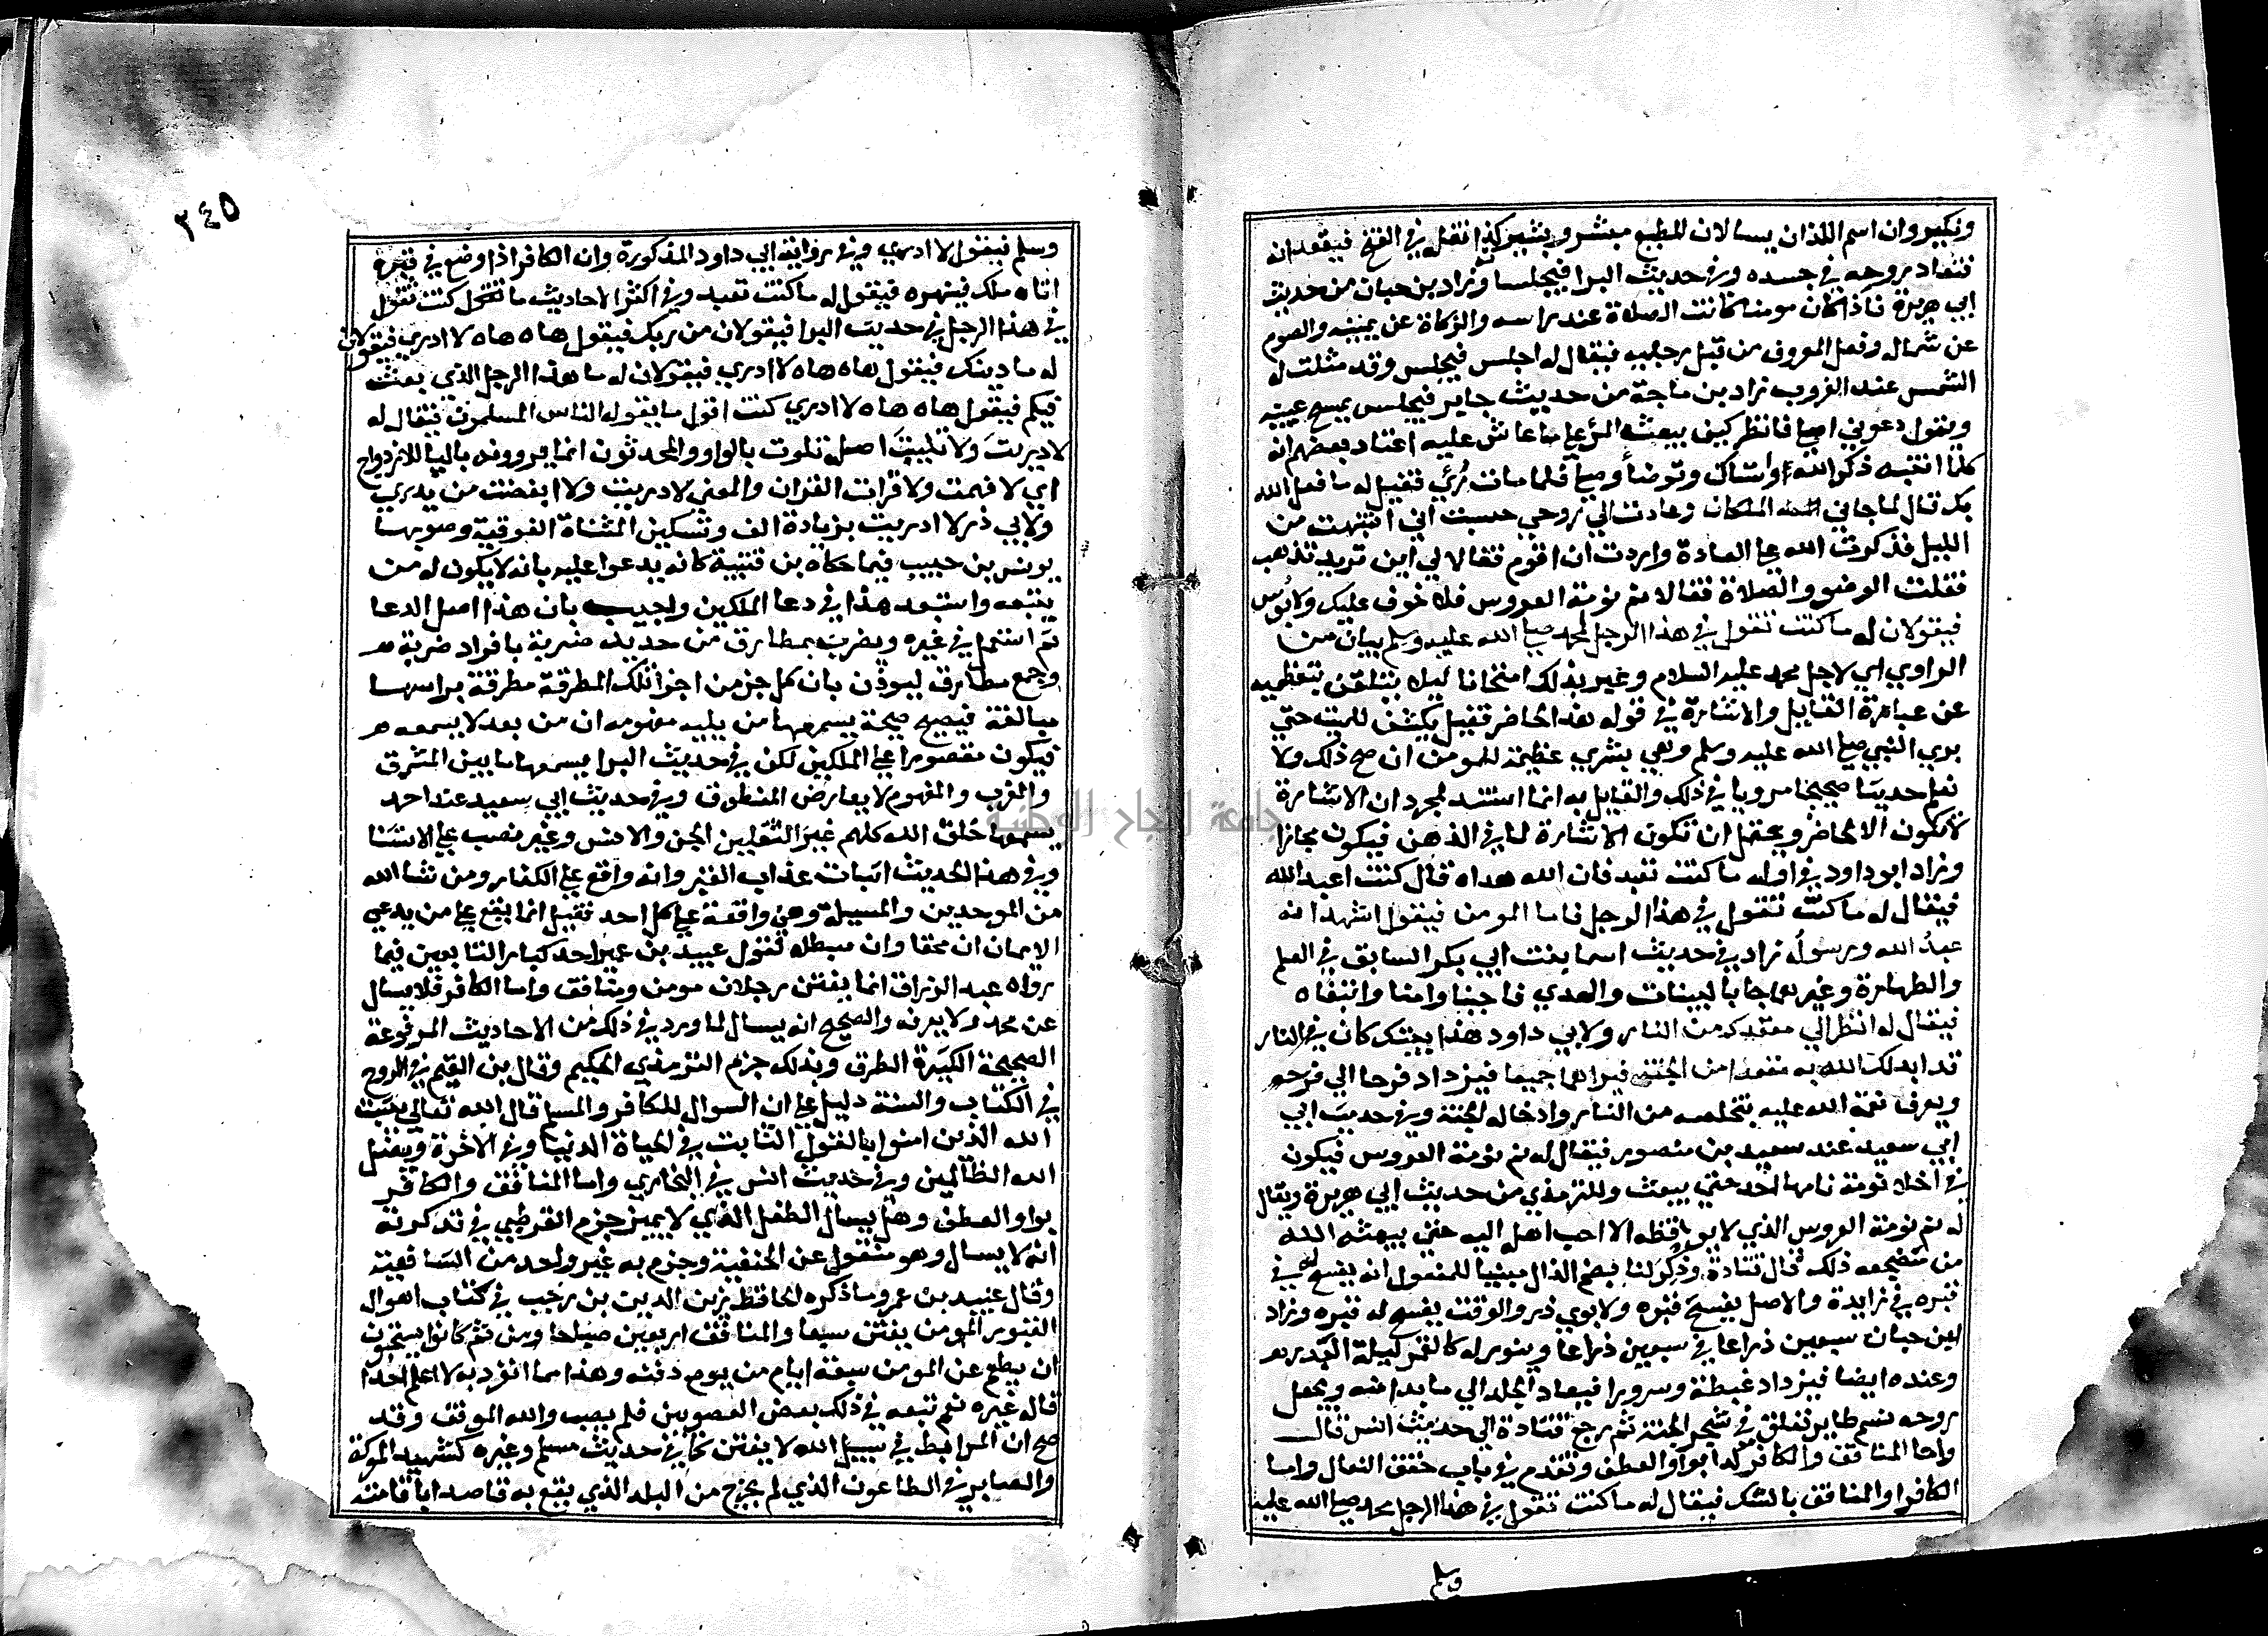 ونكير وان اسم اللذان يسالان المطيع مبشر وبشير كذا نقله في الفتح فيقعدانه
فتعاد روحه في جسده وفي حديث البرا فيجلسا وزاد بن حبان من حديث
ابي هريرة فاذا كان مومنا كانت الصلاة عند راسه والزكاة عن يمينه والصوم
عن شماله وفعل المعروف من قبل رجليه فيقال له اجلس فيجلس وقد مثلت له
الشمس عند الغروب زاد بن ماجة من حديث جابر فيجلس يمسح عينيه
ويقول دعوني اصلي فانظر كيف يبعث المرء على ما عاش عليه اعتاد بعضهم انه
كلما انتبه ذكر الله واستاك وتوضأ وصلى فلما مات رُئي فقيل له ما فعل الله
بك قال لما جاني الملكان وعادت الي روحي حسبت اني انتبهت من
الليل فذكرت الله على العادة واردت ان اقوم فقالا لي اين تريد تذهب
فقلت الوضو والصلاة فقالا نم نومة العروس فلا خوف عليك ولا بوس
فيقولان له ما كنت تقول في هذا الرجل لمحمد صلى الله عليه وسلم بيان من
الراوي اي لاجل محمد عليه السلام وغير بذلك امتحانا ليلا يتلقن بتعظيمه
عن عبارة القايل والاشارة في قوله هذا الحاضر فقيل يكشف للميت حتى
يرى النبي صلى الله عليه وسلم وهي بشرى عظيمة للمومن ان صح ذلك ولا
نعلم حديثا صحيحا مرويا في ذلك والقايل به انما استند لمجرد ان الاشارة
لا تكون الا لحاضر ويحتمل ان تكون الاشارة لما في الذهن فيكون مجازا
وزاد ابو داود في اوله ما كنت تعبد فان الله هداه قال كنت اعبد الله
فيقال له ما كنت تقول في هذا الرجل فاما المومن فيقول اشهد انه
عبدُ الله ورسولُه زاد في حديث اسما بنت ابي بكر السابق في العلم
والطهارة وغيرهما جا بالبينات والهدي فاجبنا وامنا واتبعناه
فيقال له انظر الي مقعدك من النار ولابي داود هذا بيتك كان في النار
قد ابدلك الله به مقعدا من الجنة فيراهما جميعا فيزداد فرحا الي فرحه
ويعرف نعمة الله عليه بتخلصه من النار وادخاله الجنة وفي حديث ابي
ابي سعيد عند سعيد بن منصور فيقال له نم نومة العروس فيكون
في احلا نومة نامها احد حتى يبعث وللترمذي من حديث ابي هريرة ويقال
له نم نومة العروس الذي لا يوقظه الا احب اهله اليه حتى يبعثه الله
من مضجعه ذلك قال قتادة وذُكِر لنا بضم الذال مبنيا للمفعول انه يفسح له في
قبره في زايدة والاصل يفسح قبره ولابوي ذر والوقت يفسح له قبره وزاد
ابن حبان سبعين ذراعا في سبعين ذراعا وينور له كالقمر ليلة البدر
وعنده ايضا فيزداد غبطة وسرورا فيعاد الجلد الي ما بدا منه ويجعل
روحه نسم طاير تعلق في شجر الجنة ثم رجع قتادة الي حديث انس قال
واما المنافق والكافر كذا بواو العطف وتقدم في باب خفق النعال واما
الكافر او المنافق بالشك فيقال له ما كنت تقول في هذا الرجل محمد صلى الله عليه
وسلم
٢٤٥
وسلم فيقول لا ادري وفي رواية ابي داود المذكورة وان الكافر اذا وضع في قبره
اتاه ملك فينهره فيقول له ما كنت تعبد وفي اكثر الاحاديث ما كنت تقول
في هذا الرجل في حديث البرا فيقولان من ربك فيقول هاه هاه لا ادري فيقولان
له ما دينك فيقول هاه هاه لا ادري فيقولان له ما هذا الرجل الذي بعث
فيكم فيقول هاه هاه لا ادري كنت اقول ما يقوله الناس المسلمون فيقال له
لا دريتَ ولا تليتَ اصله تلوت بالواو والمحدثون انما يروونه باليا للازدواج
اي لا فهمت ولا قرات القران والمعنى لا دريت ولا اتبعت من يدري
ولابي ذر لا ادريت بزيادة الف وتسكين المثناة الفوقية وصوبها
يونس بن حبيب فيما حكاه بن قتيبة كانه يدعوا عليه بانه لا يكون له من
يتبعه واستبعد هذا في دعا الملكين واجيب بان هذا اصل الدعا
ثم استعمل في غيره ويضرب بمطارق من حديد ضربة بافراد ضربة
وجمع مطارق ليوذن بان كل جز من اجزا تلك المطرقة مطرقة براسها
مبالغة فيصيح صيحة يسمعها من يليه مفهومه ان من بعد لا يسمعه
فيكون مقصورا على الملكين لكن في حديث البرا يسمعها ما بين المشرق
والمغرب والمفهوم لا يعارض المنطوق وفي حديث ابي سعيد عند احمد
يسمعها خلق الله كلهم غير الثقلين الجن والانس وغير نصب على الاستثنا
وفي هذا الحديث اثبات عذاب القبر وانه واقع على الكفار ومن شا الله
من الموحدين والمسيلة وهي واقعة على كل احد فقيل انما يقع على من يدعي
الايمان ان محقا وان مبطلا لقول عبيد بن عمير احد كبار التابعين فيما
رواه عبد الرزاق انما يفتن رجلان مومن ومنافق واما الكافر فلا يسال
عن محمد ولا يعرفه والصحيح انه يسال لما ورد في ذلك من الاحاديث المرفوعة
الصحيحة الكثيرة الطرق وبذلك جزم الترمذي الحكيم وقال بن القيم في الروح
في الكتاب والسنة دليل على ان السوال للكافر والمسلم قال الله تعالى يثبت
الله الذين امنوا بالقول الثابت في الحياة الدنيا وفي الاخرة ويضل
الله الظالمين وفي حديث انس في البخاري واما المنافق والكافر
بواو العطف وهل يسال الطفل الذي لا يميز جزم القرطبي في تذكرته
انه لا يسال وهو منقول عن الحنفية وجزم به غير واحد من الشافعية
وقال عبيد بن عمر وما ذكره الحافظ زين الدين بن رجب في كتاب اهوال
القبور المومن يفتن سبعا والمنافق اربعين صباحا ومن ثم كانوا يستحبون
ان يطعم عن المومن سبعة ايام من يوم دفنه وهذا مما انفرد به لا اعلم احدا
قاله غيره نعم تبعه في ذلك بعض العصويين فلم يصب والله الموفق وقد
صح ان المرابط في سبيل الله لا يفتن كما في حديث مسلم وغيره كشهيد المعركة
والصابر في الطاعون الذي لم يخرج من البلد الذي يقع به قاصدا باقامته
جامعة النجاح الوطنية